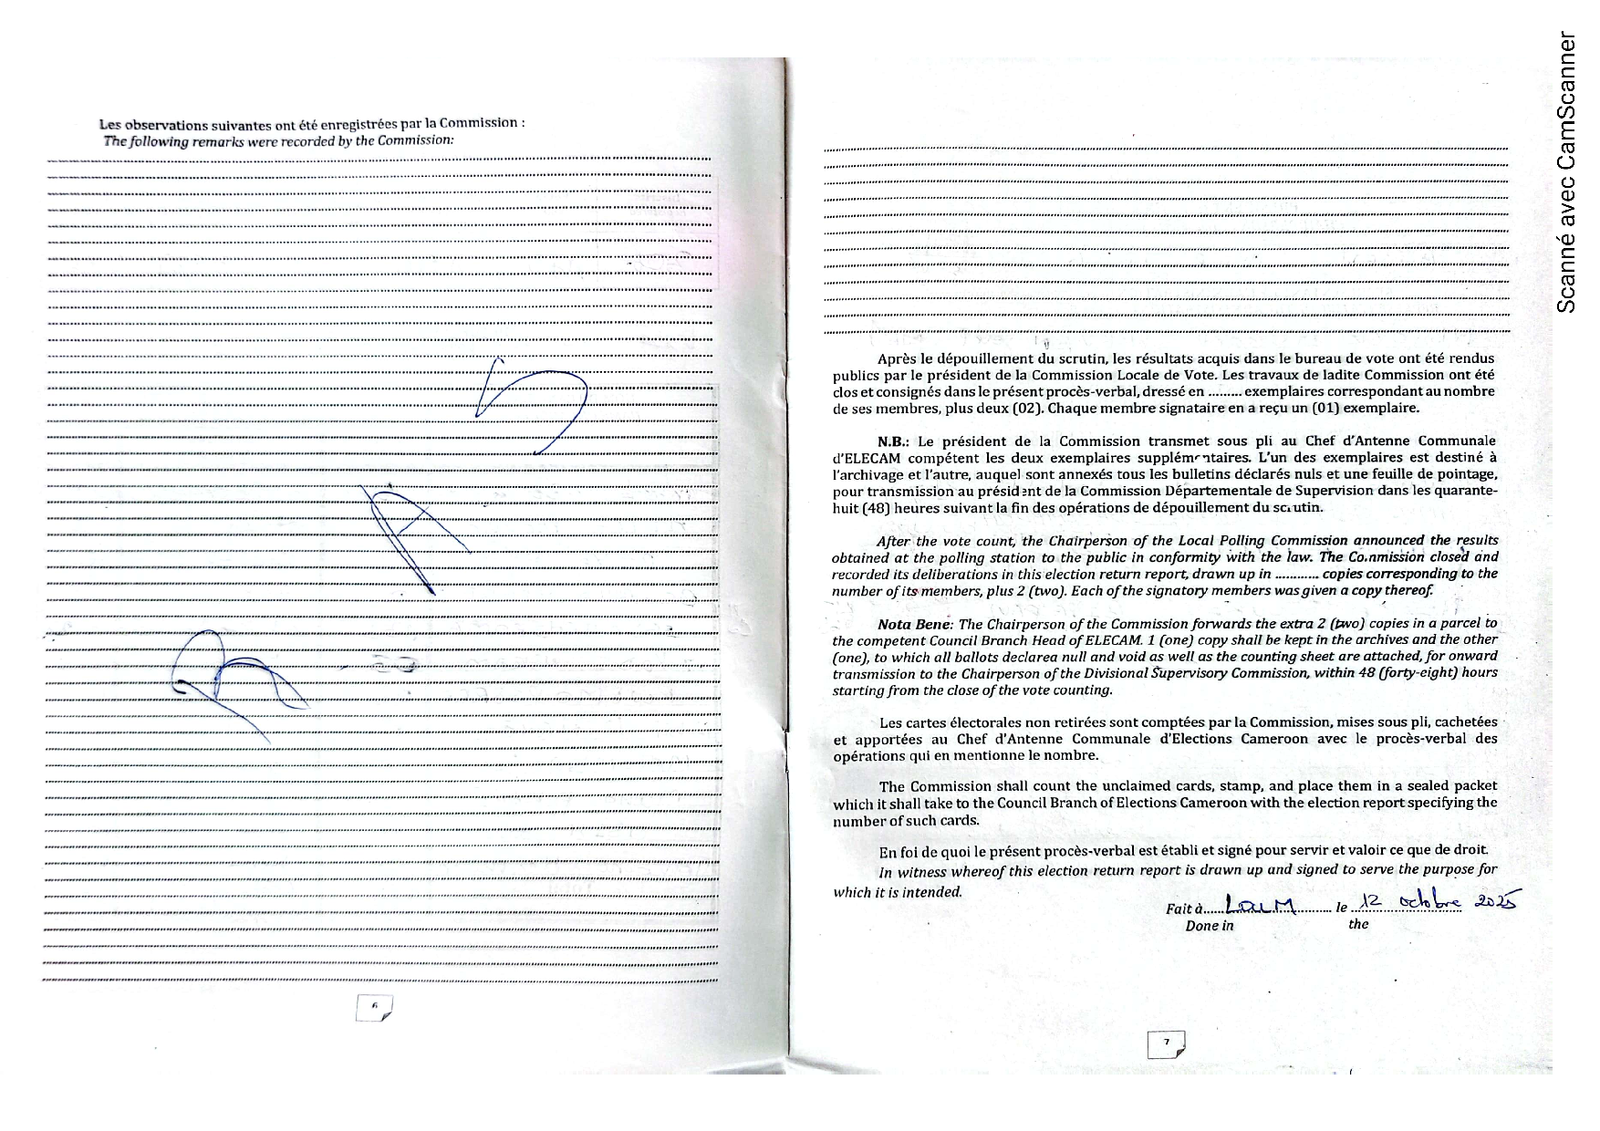 Les observations suivantes ont été enregistrées par la Commission :
The following remarks were recorded by the Commission:
R
A
S
6
Après le dépouillement du scrutin, les résultats acquis dans le bureau de vote ont été rendus
publics par le président de la Commission Locale de Vote. Les travaux de ladite Commission ont été
clos et consignés dans le présent procès-verbal, dressé en ......... exemplaires correspondant au nombre
de ses membres, plus deux (02). Chaque membre signataire en a reçu un (01) exemplaire.
N.B.: Le président de la Commission transmet sous pli au Chef d'Antenne Communale
d'ELECAM compétent les deux exemplaires supplémentaires. L'un des exemplaires est destiné à
l'archivage et l'autre, auquel sont annexés tous les bulletins déclarés nuls et une feuille de pointage,
pour transmission au président de la Commission Départementale de Supervision dans les quarante-
huit (48) heures suivant la fin des opérations de dépouillement du scrutin.
After the vote count, the Chairperson of the Local Polling Commission announced the results
obtained at the polling station to the public in conformity with the law. The Commission closed and
recorded its deliberations in this election return report, drawn up in ........... copies corresponding to the
number of its members, plus 2 (two). Each of the signatory members was given a copy thereof.
Nota Bene: The Chairperson of the Commission forwards the extra 2 (two) copies in a parcel to
the competent Council Branch Head of ELECAM. 1 (one) copy shall be kept in the archives and the other
(one), to which all ballots declared null and void as well as the counting sheet are attached, for onward
transmission to the Chairperson of the Divisional Supervisory Commission, within 48 (forty-eight) hours
starting from the close of the vote counting.
Les cartes électorales non retirées sont comptées par la Commission, mises sous pli, cachetées
et apportées au Chef d'Antenne Communale d'Elections Cameroon avec le procès-verbal des
opérations qui en mentionne le nombre.
The Commission shall count the unclaimed cards, stamp, and place them in a sealed packet
which it shall take to the Council Branch of Elections Cameroon with the election report specifying the
number of such cards.
En foi de quoi le présent procès-verbal est établi et signé pour servir et valoir ce que de droit.
In witness whereof this election return report is drawn up and signed to serve the purpose for
which it is intended.
Fait à..... Loum ......... le 12 octobre 2025
Done in the
7
Scanné avec CamScanner